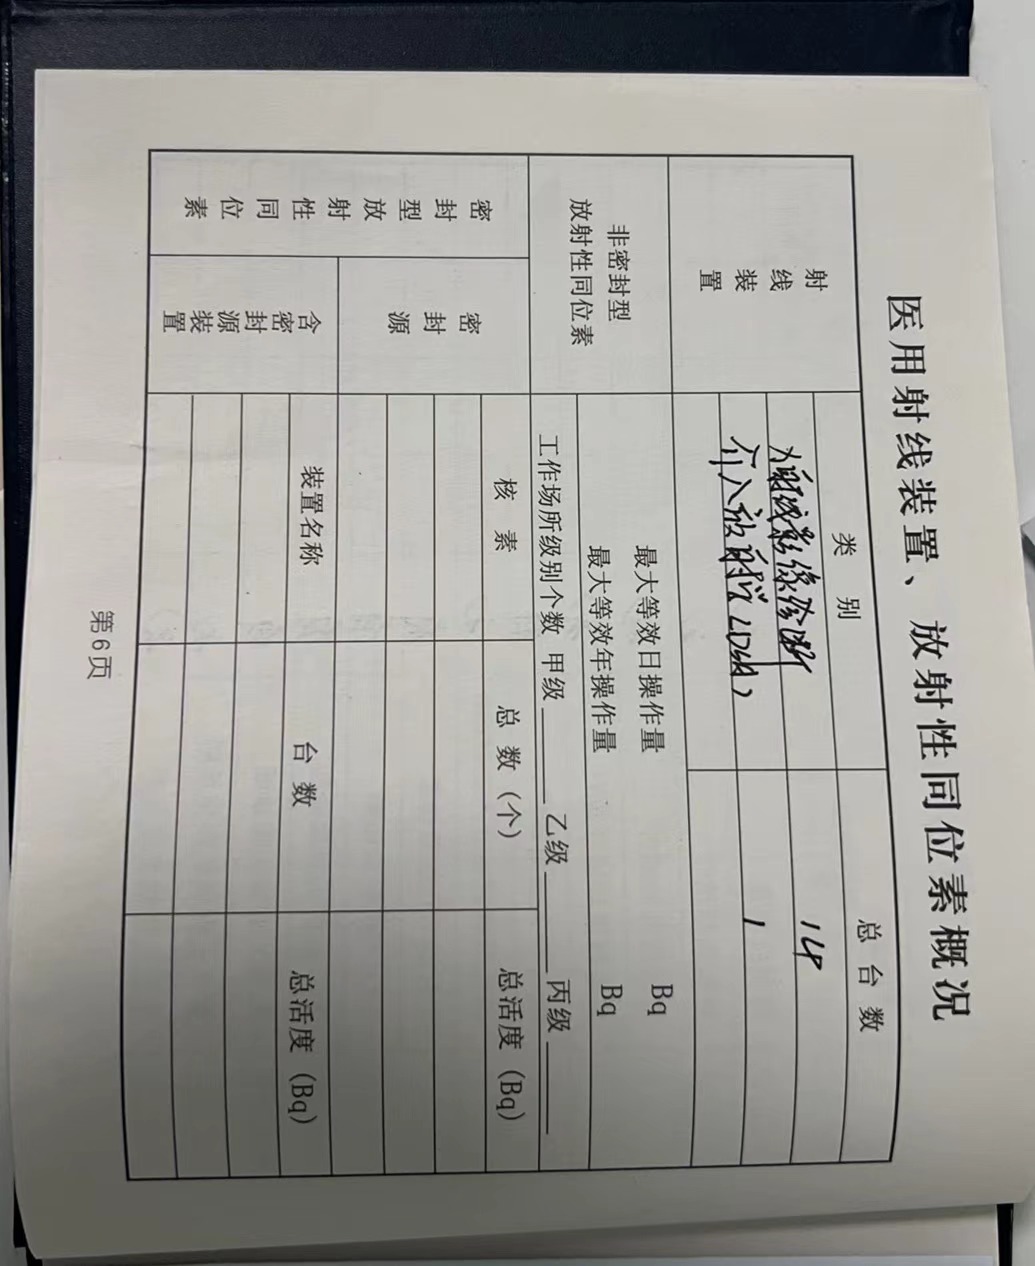 医用射线装置、放射性同位素概况
射线装置
类别 总台数
X射线影像诊断 14
介入放射学(DSA) 1
非密封型放射性同位素
最大等效日操作量 Bq
最大等效年操作量 Bq
工作场所级别个数 甲级 乙级 丙级
密封型放射性同位素
密封源
核素 总数(个) 总活度(Bq)
含密封源装置
装置名称 台数 总活度(Bq)
第6页